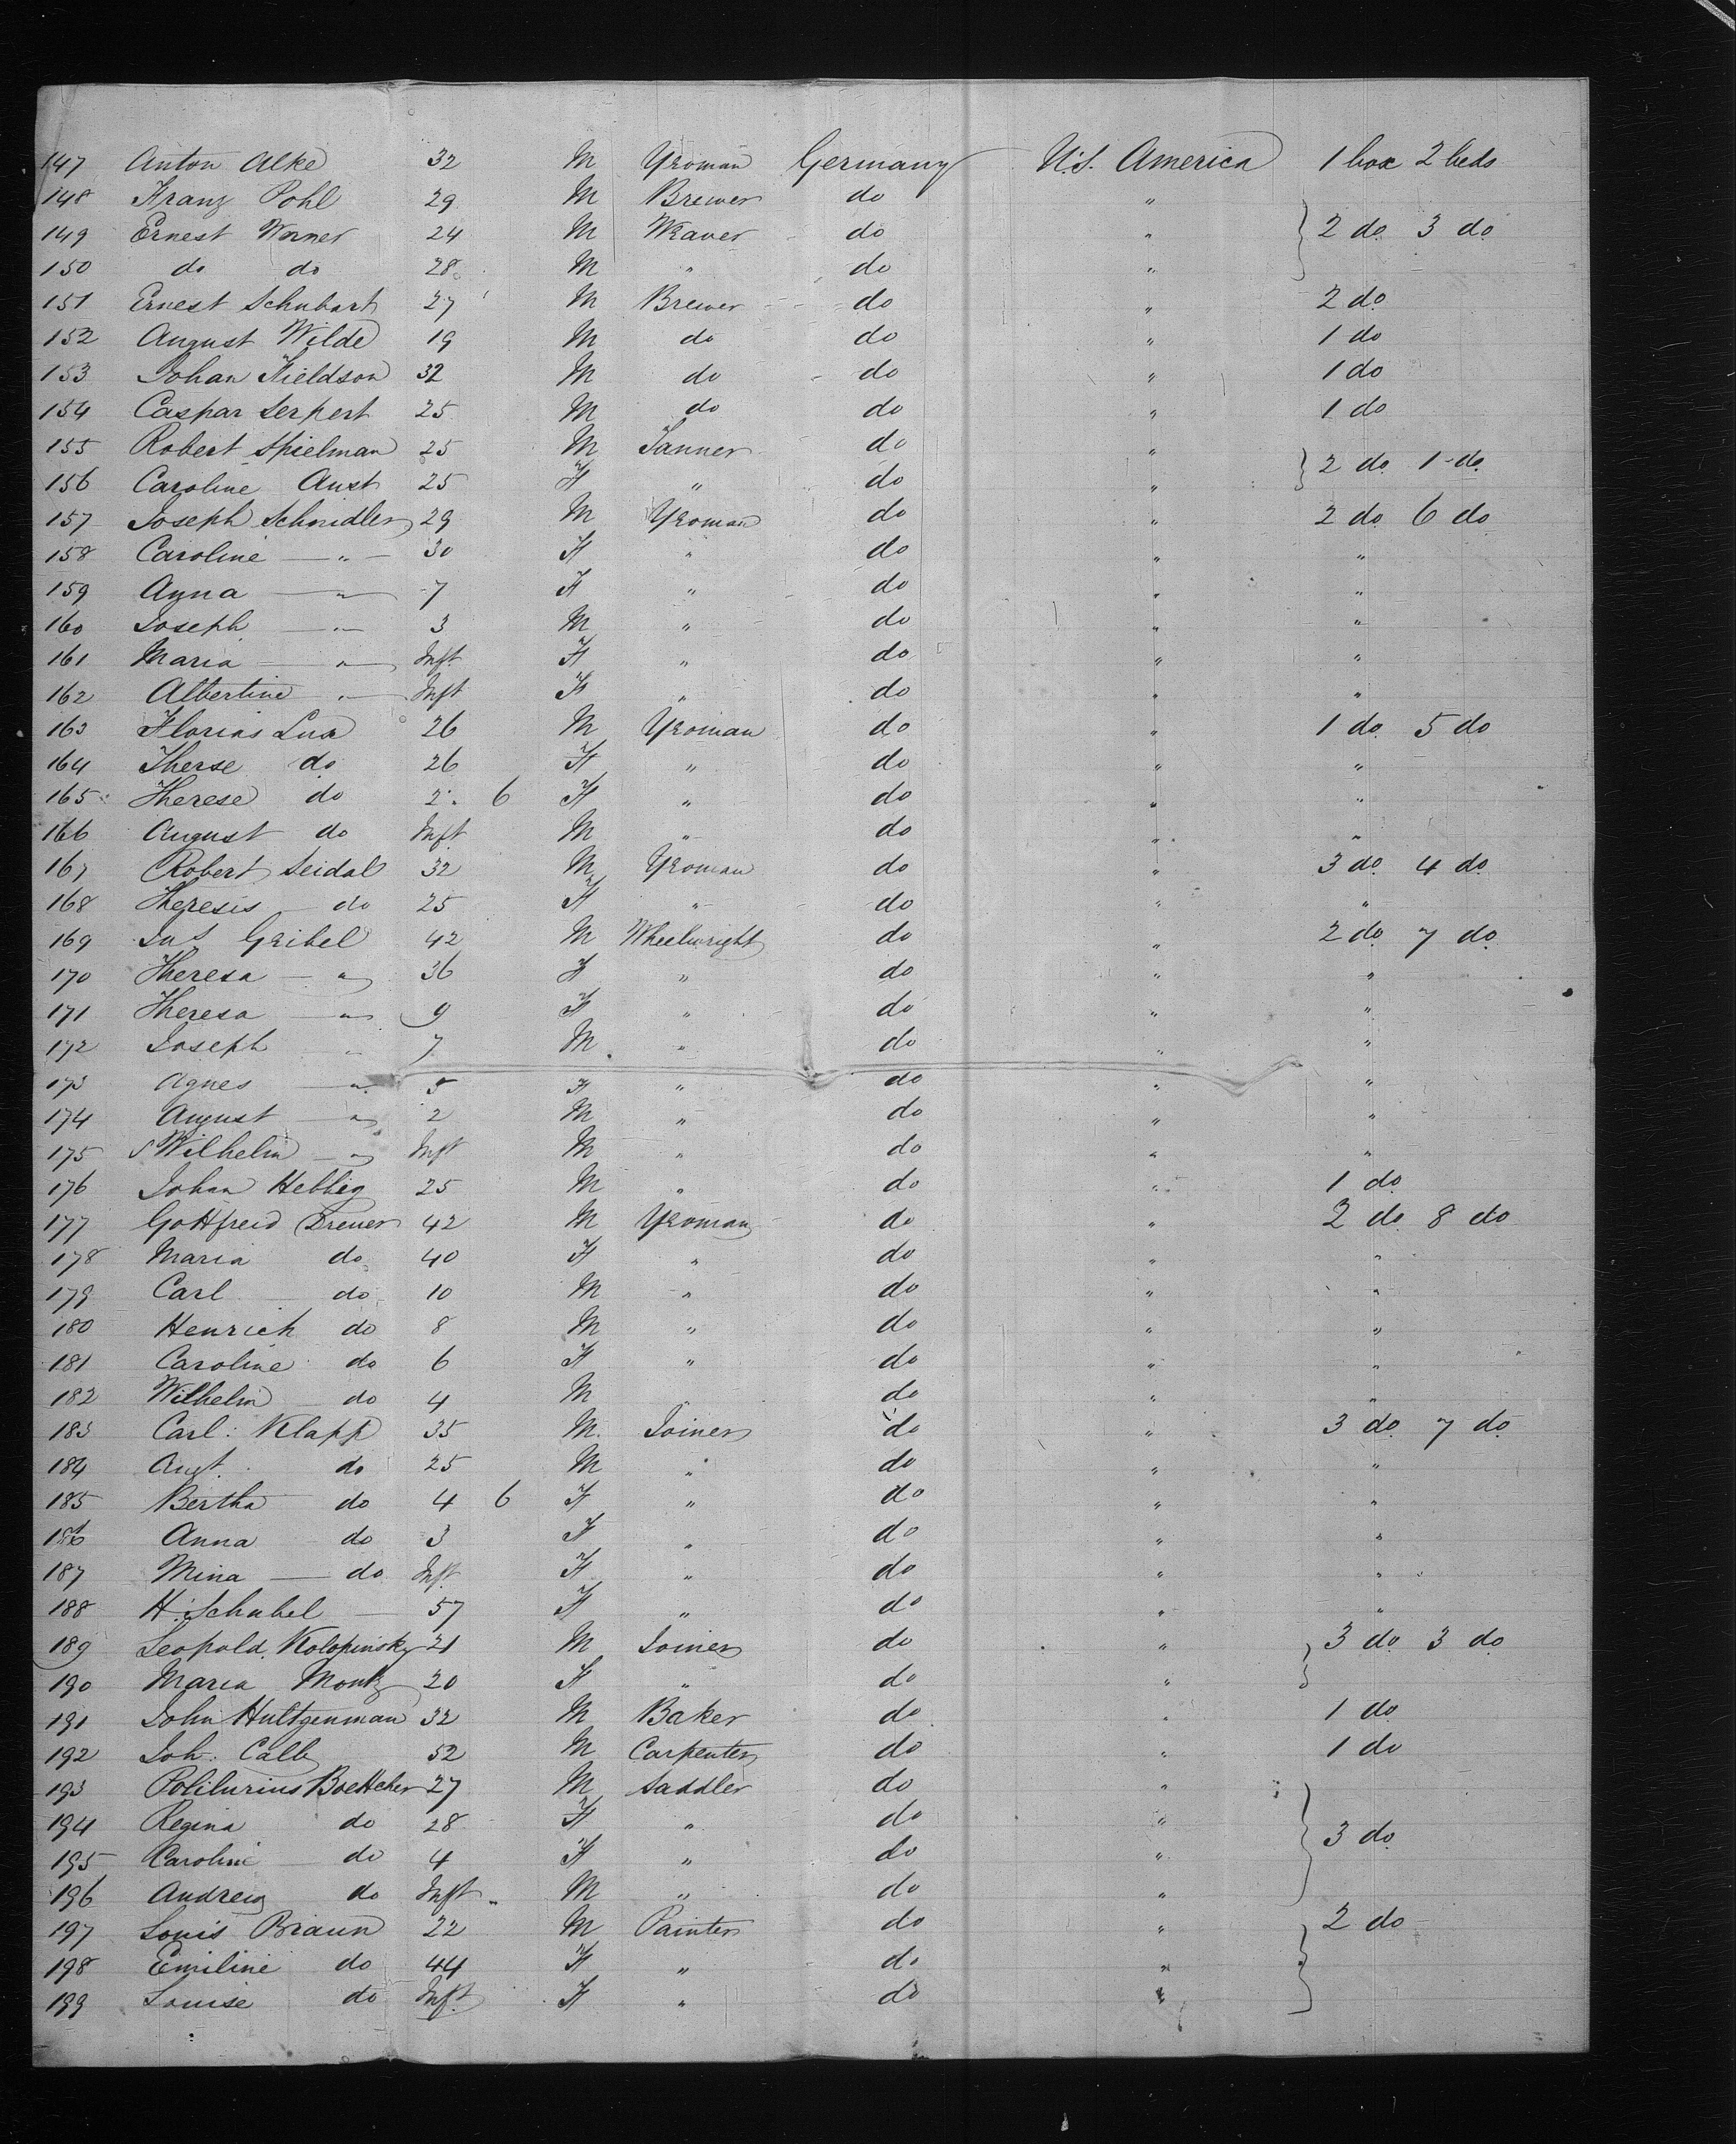 147 Anton Alke 32 M Yeoman Germany U.S. America 1 box 2 beds
148 Franz Pohl 29 M Brewer do "
149 Ernest Worner 24 M Weaver do " 2 do 3 do
150 do do 28 M " do "
151 Ernest Schubart 27 M Brewer do " 2 do
152 August Wilde 19 M do do " 1 do
153 Johan Fieldson 32 M do do " 1 do
154 Caspar Serpert 25 M do do " 1 do
155 Robert Spielman 25 M Tanner do " 2 do 1 do
156 Caroline Aust 25 F " do "
157 Joseph Schnidler 29 M Yeoman do " 2 do 6 do
158 Caroline — " — 30 F " do " "
159 Anna — " — 7 F " do " "
160 Joseph — " — 3 M " do " "
161 Maria — " — Inft F " do " "
162 Albertine " — Inft F " do " "
163 Florias Lux 26 M Yeoman do " 1 do 5 do
164 Therse do 26 F " do " "
165 Therese do 2 6 F " do " "
166 August do Inft M " do " "
167 Robert Seidal 32 M Yeoman do " 3 do 4 do
168 Theresis do 25 F " do " "
169 Geibel 42 M Wheelwright do " 2 do 7 do
170 Theresa — " 36 F " do " "
171 Theresa — " 9 F " do " "
172 Joseph " 7 M " do " "
173 Agnes — " 5 F " do " "
174 August — " 2 M " do " "
175 Wilhelm — " Inft M " do " "
176 Johan Hebbig 25 M " do " 1 do
177 Gottfreid Dreuer 42 M Yeoman do " 2 do 8 do
178 Maria do 40 F " do " "
179 Carl do 10 M " do " "
180 Henrich do 8 M " do " "
181 Caroline do 6 F " do " "
182 Wilhelm do 4 M " do " "
183 Carl Klapp 35 M Joiner do " 3 do 7 do
184 Aust. do 25 M " do " "
185 Bertha do 4 6 F " do " "
186 Anna do 3 F " do " "
187 Mina — do Inft F " do " "
188 H. Schubel — 57 F " do " "
189 Leopold Kolopinsky 21 M Joiner do " 3 do 3 do
190 Maria Montz 20 F " do "
191 John Hultgenman 32 M Baker do " 1 do
192 Joh. Calb 52 M Carpenter do " 1 do
193 Polilurius Boettcher 27 M Saddler do "
194 Regina do 28 F " do " 3 do
195 Caroline do 4 F " do "
196 Andreig do Inft M " do "
197 Louis Braun 22 M Painter do " 2 do
198 Emiline do 44 F " do "
199 Louise do Inft F " do "